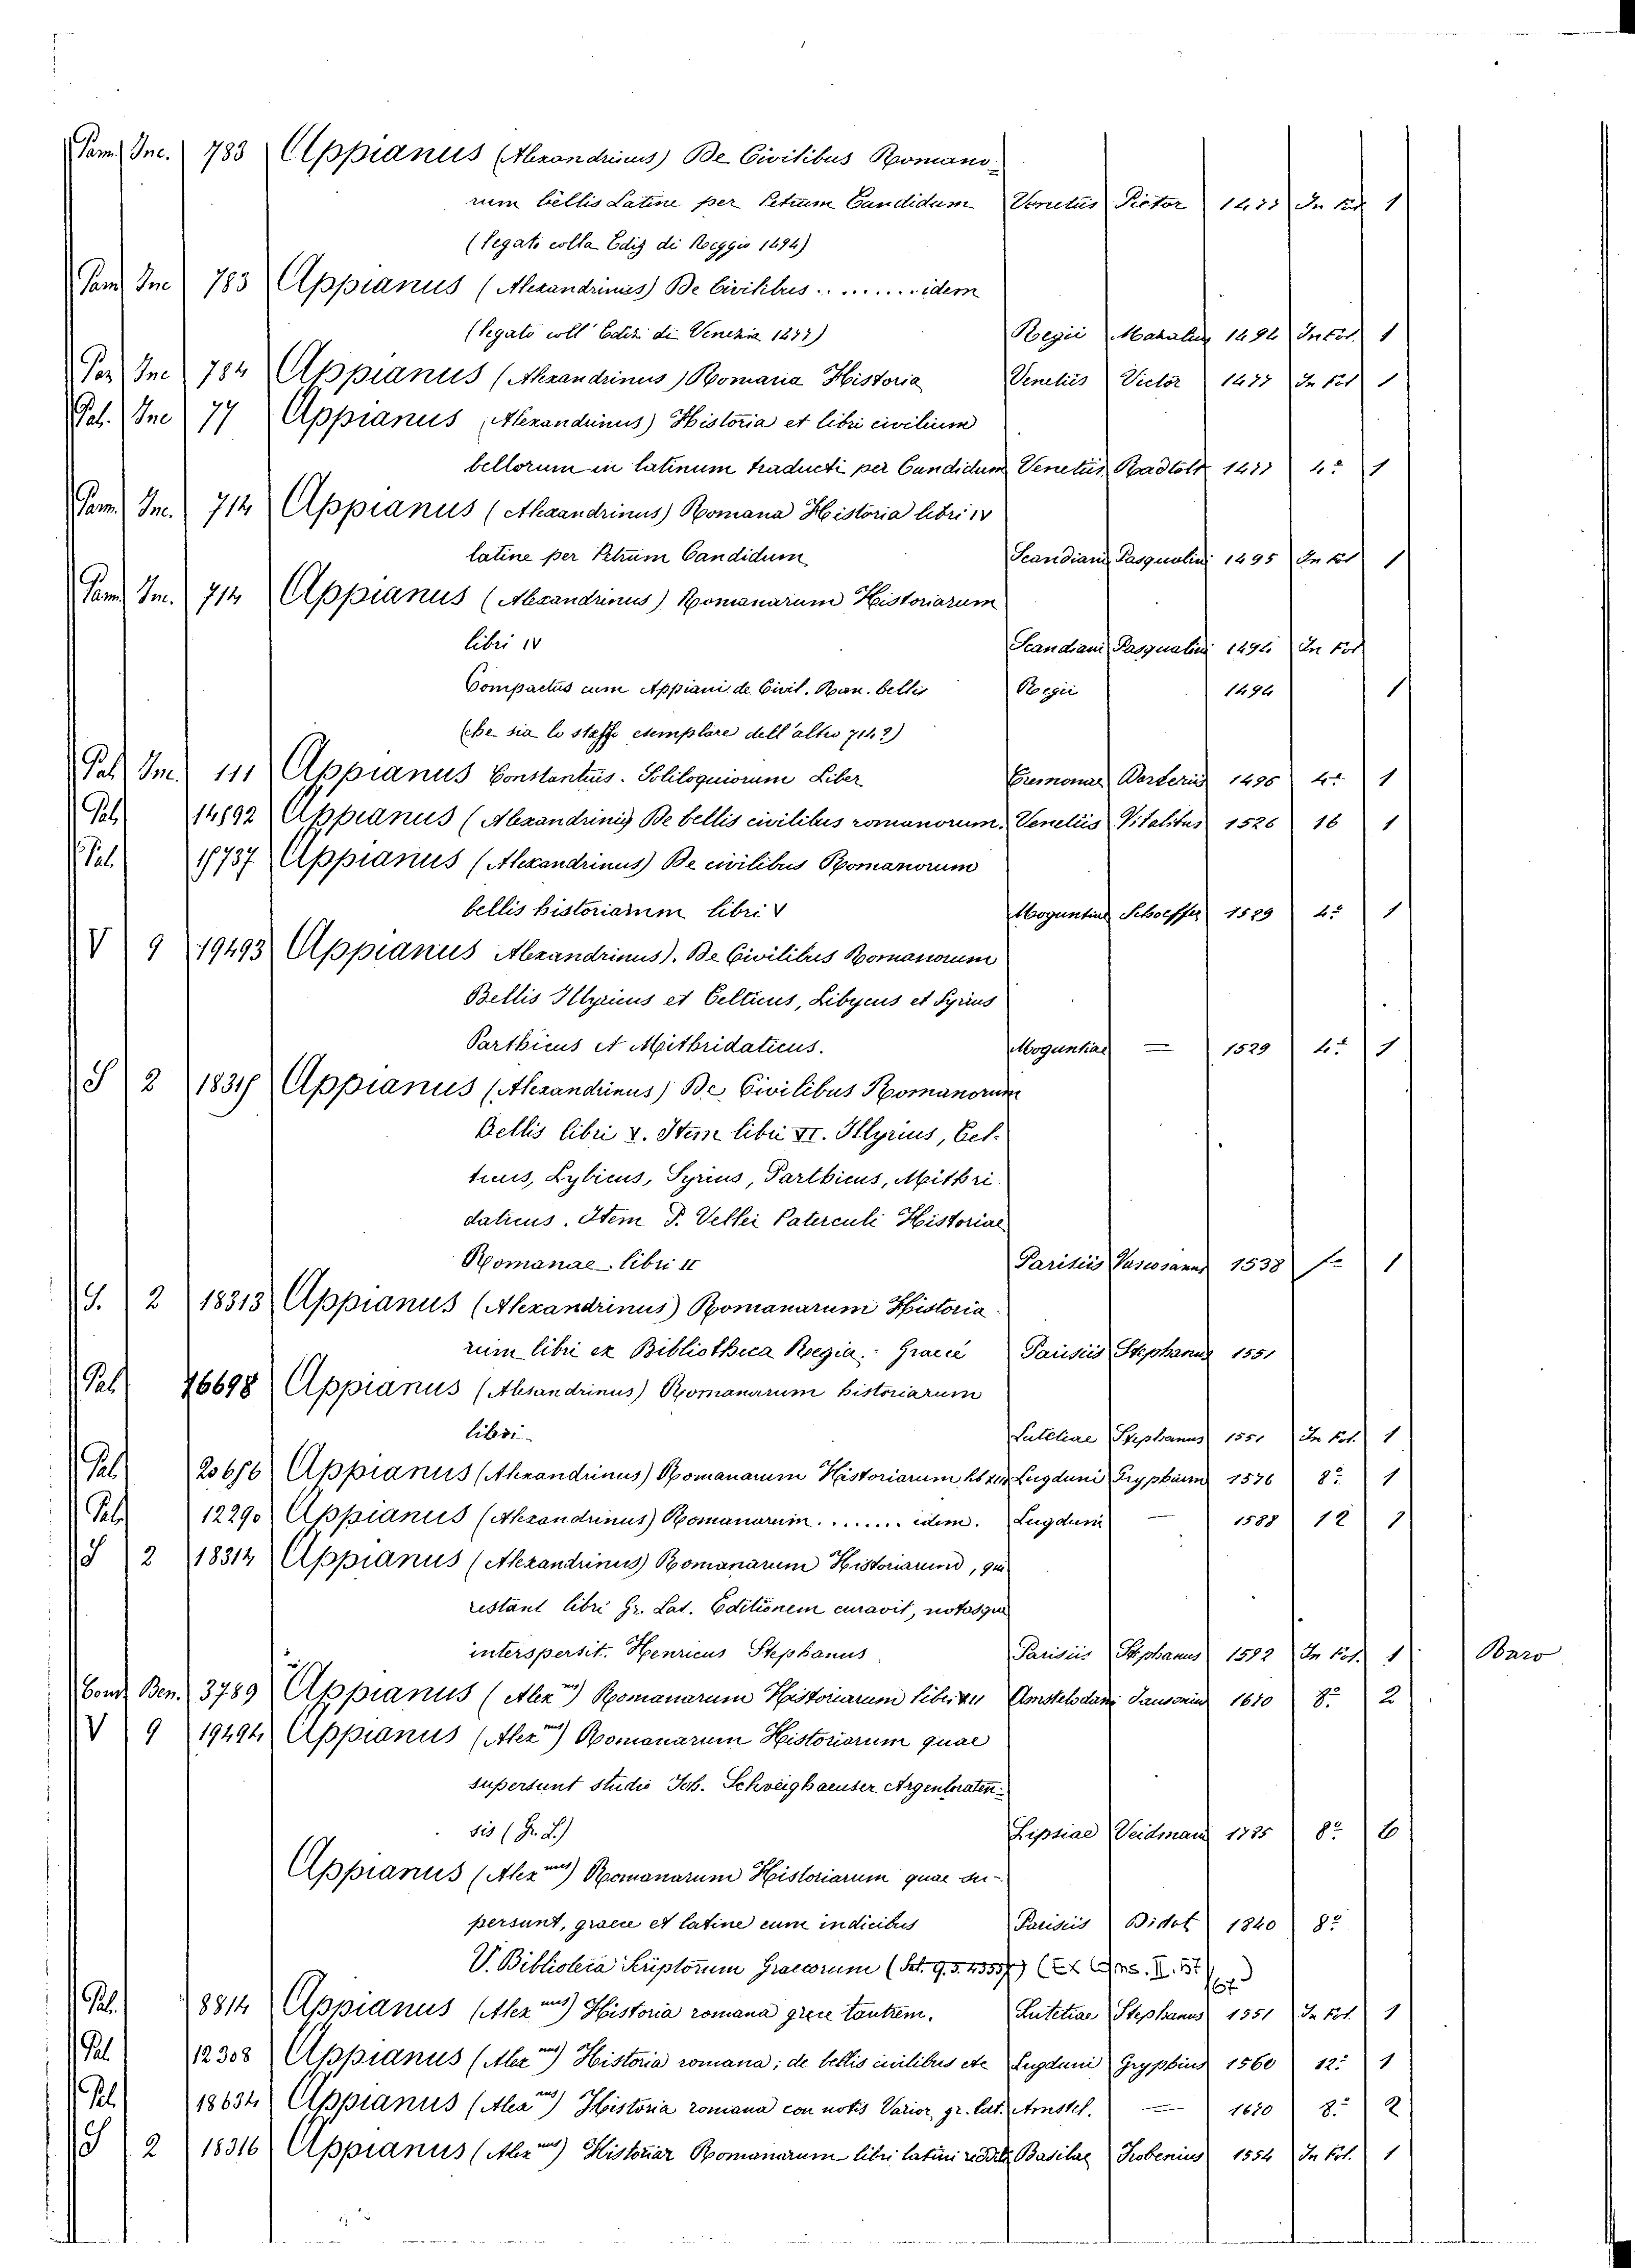 Pam. Inc. 783 Appianus (Alexandrinus) De Civilibus Romano-
rum bellis Latine per Petrum Candidum Venetiis Pictor 1477 In fol 1
(legato colla Ediz di Reggio 1494)
Pam Inc 783 Appianus (Alexandrinus) De Civilibus .......... idem
(legato coll' Ediz di Venezia 1477) Regii Mazalis 1494 In fol. 1
Inc 784 Appianus (Alexandrinus) Romana Historia Venetiis Victor 1477 In fol 1
Pal. Inc 77 Appianus (Alexandrinus) Historia et libri civilium
bellorum in latinum traducti per Candidum Venetiis Radtolt 1477 4º 1
Pam. Inc. 714 Appianus (Alexandrinus) Romana Historia libri IV
latine per Petrum Candidum Scandiani Pasqualini 1495 In fol 1
Pam. Inc. 714 Appianus (Alexandrinus) Romanarum Historiarum
libri IV Scandiani Pasqualini 1494 In fol
Compactus cum Appiani de Civil. Rom. bellis Regii 1494 1
(che sia lo stesso esemplare dell'altro 714?)
Pal. Inc. 111 Appianus Constantius. Soliloquiorum Liber Cremonae 1496 4º 1
Pal. 14892 Appianus (Alexandrinus) De bellis civilibus romanorum. Venetiis Vitalitus 1526 16 1
Pal. 15737 Appianus (Alexandrinus) De civilibus Romanorum
bellis historiarum libri V Moguntiae Schoeffer 1529 4º 1
V 9 19493 Appianus Alexandrinus). De Civilibus Romanorum
Bellis Illyricus et Celticus, Libycus et Syrius
Parthicus et Mithridaticus. Moguntiae — 1529 4º 1
S 2 18315 Appianus (Alexandrinus) De Civilibus Romanorum
Bellis libri V. Item libri VI. Illyrius, Cel-
ticus, Lybicus, Syrius, Parthicus, Mithri-
daticus. Item P. Vellei Paterculi Historiae
Romanae libri II Parisiis Vascosanus 1538 fo 1
S. 2 18313 Appianus (Alexandrinus) Romanarum Historia-
rum libri ex Bibliotheca Regia. - Graece Parisiis Stephanus 1551
Pal 16698 Appianus (Alexandrinus) Romanarum historiarum
libri Lutetiae Stephanus 1551 In fol. 1
Pal. 20656 Appianus (Alexandrinus) Romanarum Historiarum Lugduni Gryphium 1576 8º 1
Pal. 12290 Appianus (Alexandrinus) Romanarum ........ idem. Lugduni — 1588 12 1
S 2 18314 Appianus (Alexandrinus) Romanarum Historiarum, qui
restant libri Gr. Lat. Editionem curavit, notasque
interspersit. Henricus Stephanus Parisiis Stephanus 1592 In fol. 1 Baro
Ben. 3789 Appianus (Alex.nus) Romanarum Historiarum libri Amstelodami Jansonius 1670 8º 2
V 9 19494 Appianus (Alex.nus) Romanarum Historiarum quae
supersunt studio Joh. Schweighaeuser Argentoraten-
sis (Gr. L.) Lipsiae Veidmann 1785 8º 6
Appianus (Alex.nus) Romanarum Historiarum quae su-
persunt, graece et latine cum indicibus Parisiis Didot 1840 8º
V. Biblioteca Scriptorum Graecorum
Pal. 8814 Appianus (Alex nus) Historia romana grece tantum. Lutetiae Stephanus 1551 In fol. 1
Pal 12308 Appianus (Alex nus) Historia romana; de bellis civilibus etc Lugduni Gryphius 1560 12º 1
Pal. 18634 Appianus (Alex nus) Historia romana con notis Varior. gr. lat. Amstel. — 1670 8º 2
S 2 18316 Appianus (Alex nus) Historiar Romanarum libri latini redditi Basileae Frobenius 1554 In fol. 1